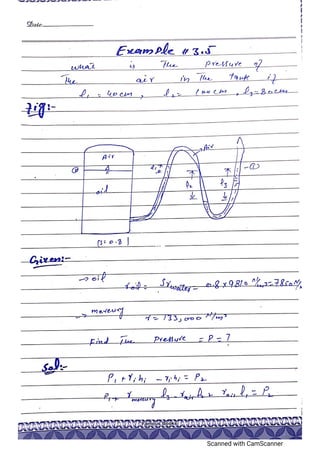 Date
Example # 3.5
what is The pressure of
The air in The Tank if
l₁ = 40cm , l₂ = 100cm , l₃ = 80cm
Fig:-
Air
Air
oil
l₂ l₃
(S=0.8)
Given:-
→ oil
γoil = Sγwater = 0.8 x 9810 N/m³ = 7850 N/m³
→ mercury
γ = 133,000 N/m³
Find The Pressure = P = ?
Sol:-
P₁ + γ₁h₁ - γ₂h₂ = P₂
P₁ + γmercury l₃ - γair l₂ + γoil l₁ = P₂
Scanned with CamScanner